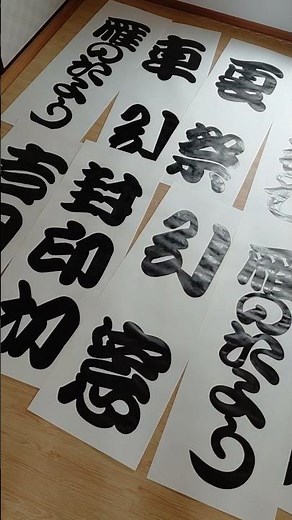 雁のたより
車引
夏祭
封印切
引窓
雁のたより